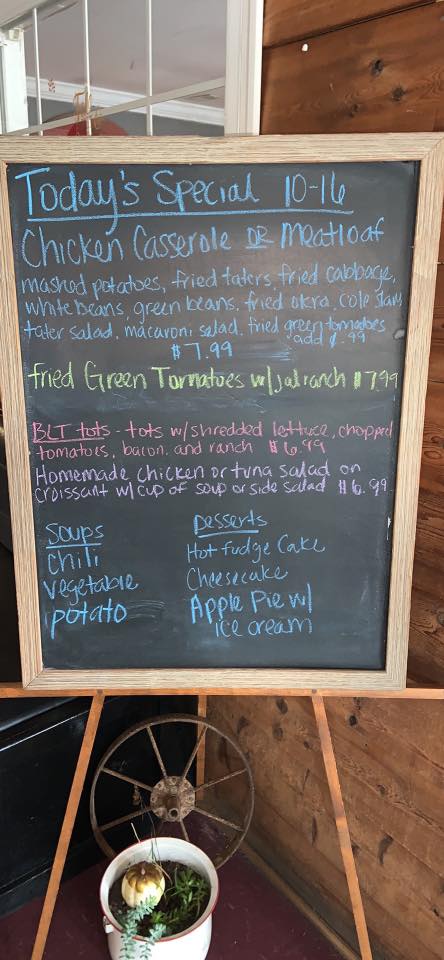 Today's Special 10-16
Chicken Casserole OR Meatloaf
mashed potatoes, fried taters, fried cabbage,
white beans, green beans, fried okra, cole slaw,
tater salad, macaroni salad, fried green tomatoes
add $.99
$7.99
fried Green Tomatoes w/ jal ranch $7.99
BLT tots - tots w/ shredded lettuce, chopped
tomatoes, bacon, and ranch $6.99
Homemade chicken or tuna salad on
croissant w/ cup of soup or side salad $6.99
Soups
chili
vegetable
potato
Desserts
Hot fudge Cake
Cheesecake
Apple Pie w/
ice cream